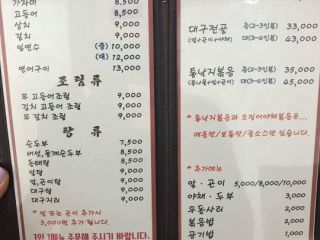 가자미 8,500
고등어 8,500
삼치 9,000
갈치 9,000
임연수 (중) 10,000
(대) 12,000
연어구이 13,000
조림류
무 고등어조림 9,000
김치 고등어조림 9,000
무 갈치 조림 9,000
탕류
순두부 7,500
버섯,들깨순두부 8,500
동태탕 8,500
알탕 9,000
알,곤이탕 9,000
대구탕 9,000
대구지리 9,000
* 알 또는 곤이 추가시
3,000원 추가 됩니다.
1인 1메뉴 주문해 주시기 바랍니다.
대구전골 중(2~3인분) 33,000
(알+곤이+야채) 대(3~4인분) 43,000
통낙지볶음 중(2~3인분) 35,000
(콩나물+쌈+곤이) 대(3~4인분) 45,000
* 통낙지볶음과 오징어야채볶음은...
매운맛/보통맛/굴소스맛 있습니다.
* 추가메뉴
알 · 곤이 5,000/8,000/10,000
야채 · 두부 3,000
우동사리 2,000
볶음밥 2,000
공기밥 1,000